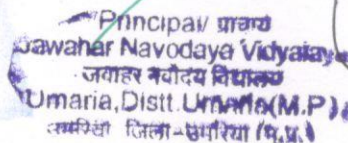 Principal/ प्राचार्य
Jawahar Navodaya Vidyalaya
जवाहर नवोदय विद्यालय
Umaria, Distt. Umaria (M.P.)
उमरिया जिला-उमरिया (म.प्र.)